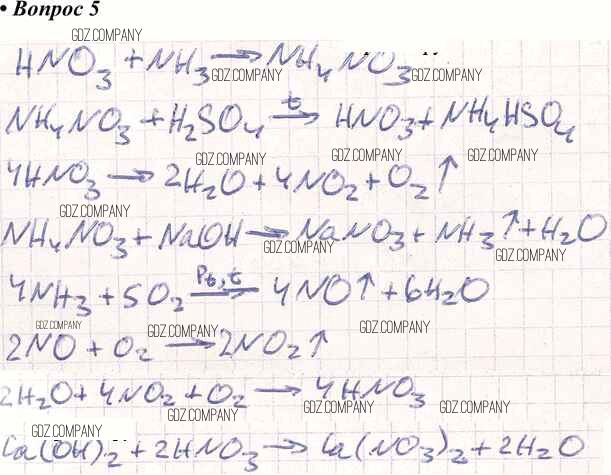 • Вопрос 5
GDZ.COMPANY
HNO₃ + NH₃ → NH₄NO₃
GDZ.COMPANY GDZ.COMPANY
NH₄NO₃ + H₂SO₄ –t→ HNO₃ + NH₄HSO₄
GDZ.COMPANY GDZ.COMPANY GDZ.COMPANY
4HNO₃ → 2H₂O + 4NO₂ + O₂↑
GDZ.COMPANY
NH₄NO₃ + NaOH → NaNO₃ + NH₃↑ + H₂O
GDZ.COMPANY GDZ.COMPANY
4NH₃ + 5O₂ –Pt, t→ 4NO↑ + 6H₂O
GDZ.COMPANY GDZ.COMPANY GDZ.COMPANY
2NO + O₂ → 2NO₂↑
2H₂O + 4NO₂ + O₂ → 4HNO₃
GDZ.COMPANY GDZ.COMPANY GDZ.COMPANY
Ca(OH)₂ + 2HNO₃ → Ca(NO₃)₂ + 2H₂O